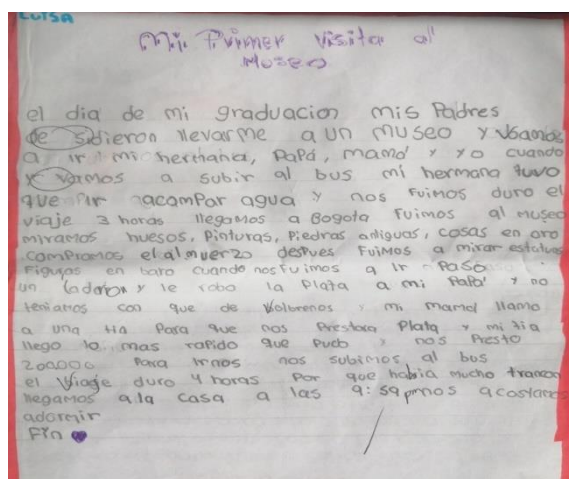 LUISA
Mi Primer Visita al
Museo
el dia de mi graduacion mis Padres
de sidieron llevarme a un museo y Vbamos
a ir mi hermana, Papá, mamá y yo cuando
y vamos a subir al bus mi hermana tuvo
que ir acompar agua y nos Fuimos duro el
viaje 3 horas llegamos a Bogota Fuimos al museo
miramos huesos, Pinturas, Piedras antiguas, cosas en oro
compramos el almuerzo despues Fuimos a mirar estatuas
Figuras en baro cuando nos fuimos a ir Paso
un ladron y le robo la Plata a mi Papá y no
teniamos con que de Volbrenos y mi mamá llamo
a una tia Para que nos Prestara Plata y mi tia
llego lo mas rapido que Pudo y nos Presto
200000 Para irnos nos subimos al bus
el Viaje duro 4 horas Por que habia mucho trancon
llegamos a la casa a las 9:59 pm nos acostamos
adormir
Fin